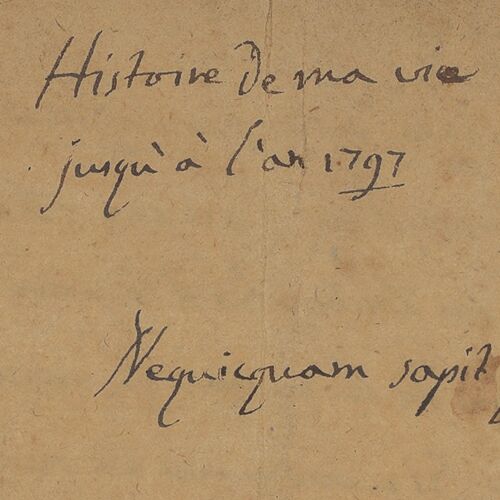 Histoire de ma vie
jusqu'à à l'an 1797
Nequicquam sapit